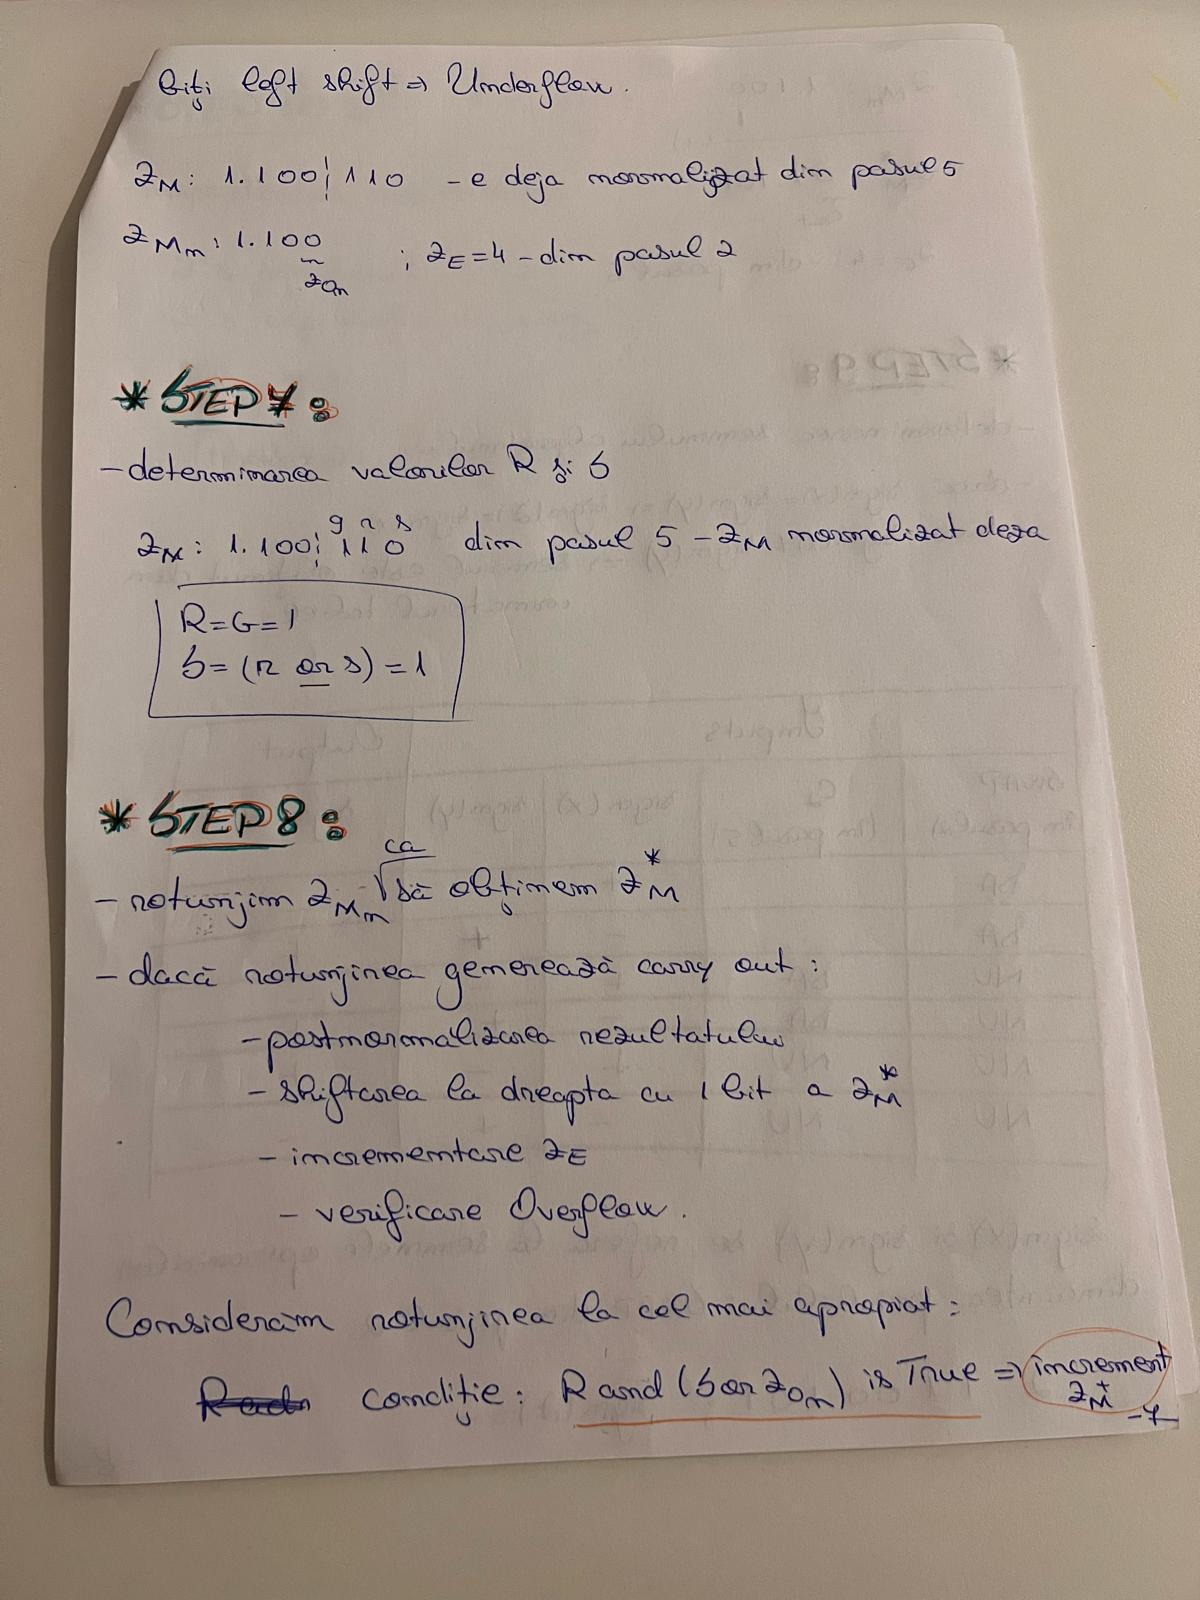 biți left shift => Underflow.
z_M: 1.100¦110 - e deja normalizat din pasul 5
z_Mn: 1.100 ; z_E=4 - din pasul 2
z_0n
* STEP 7:
- determinarea valorilor R și S
g r s
z_M: 1.100¦110 din pasul 5 - z_M normalizat deja
R=G=1
S=(r or s)=1
* STEP 8:
ca
- rotunjim z_Mn √ să obținem z_M*
- dacă rotunjirea generează carry out:
- postnormalizarea rezultatului
- shiftarea la dreapta cu 1 bit a z_M*
- incrementare z_E
- verificare Overflow.
Considerăm rotunjirea la cel mai apropiat:
condiție: R and (S or z_0n) is True => increment
z_M*
-7-